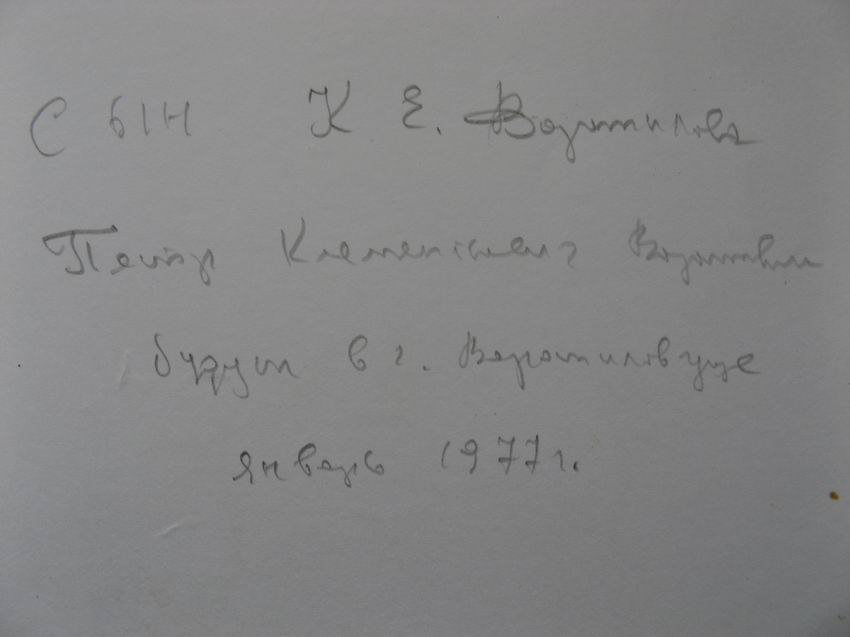 Сын К Е. Ворошилова
Петр Климентьевич Ворошилов
будут в г. Ворошиловграде
январь 1977 г.